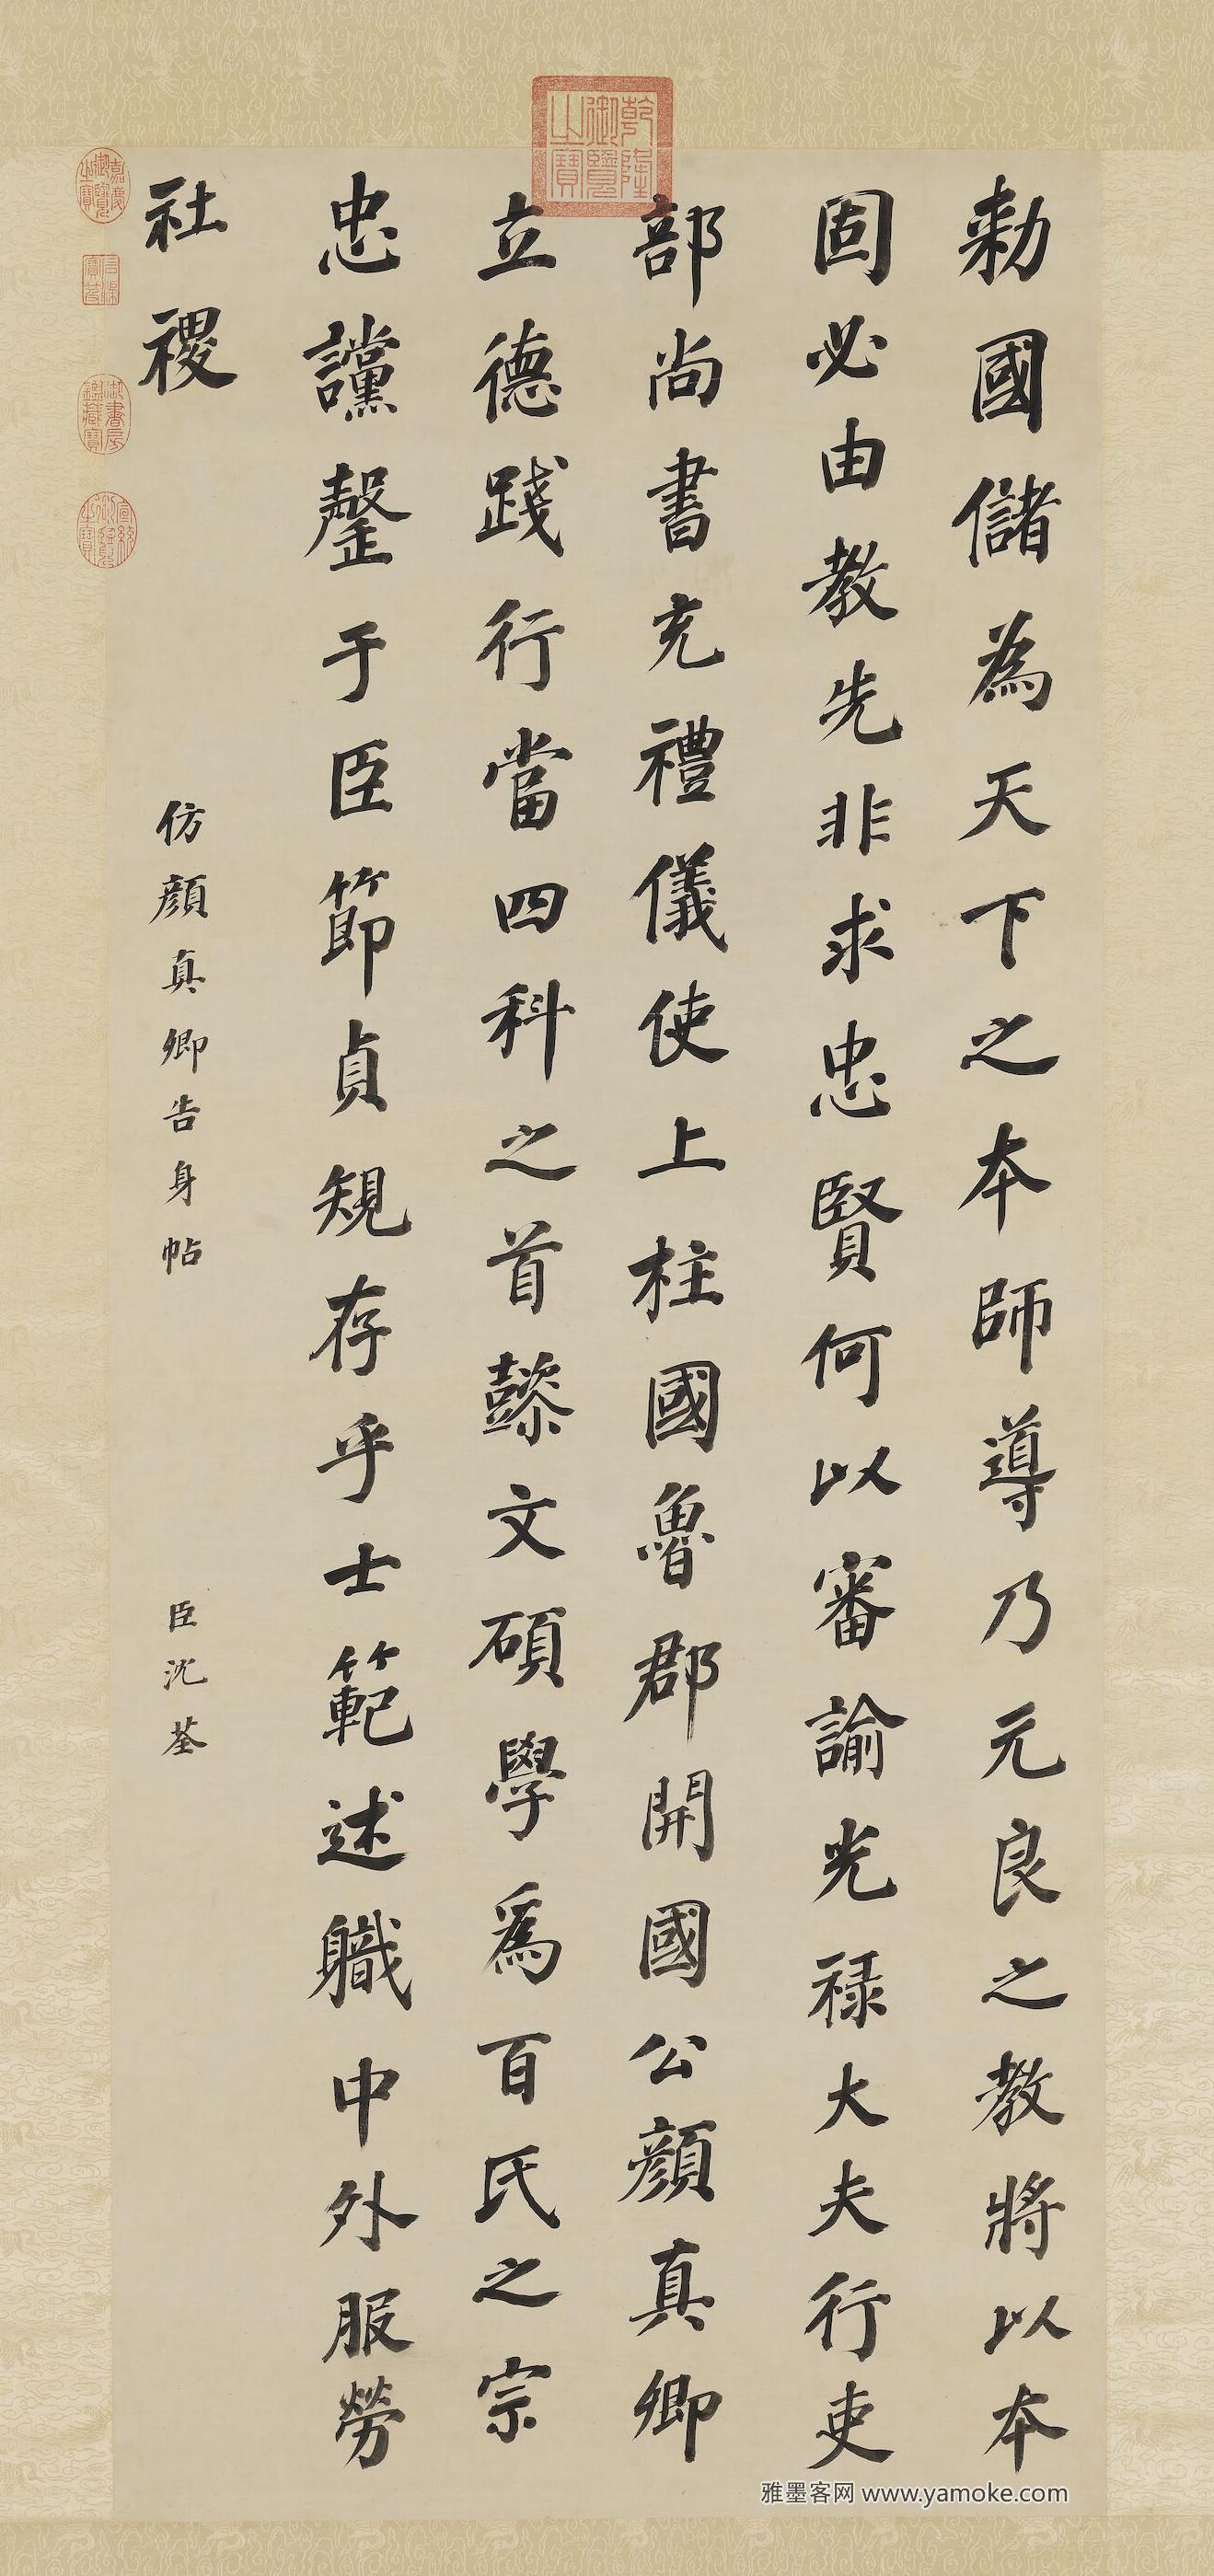 勅國儲為天下之本師導乃元良之教將以本
固必由教先非求忠賢何以審諭光禄大夫行吏
部尚書充禮儀使上柱國魯郡開國公顔真卿
立德踐行當四科之首懿文碩學爲百氏之宗
忠讜罄于臣節貞規存乎士範述職中外服勞
社稷
仿顔真卿告身帖
臣沈荃
乾隆御覽之寶
嘉慶御覽之寶
御書房鑑藏寶
宣統御覽之寶
雅墨客网 www.yamoke.com